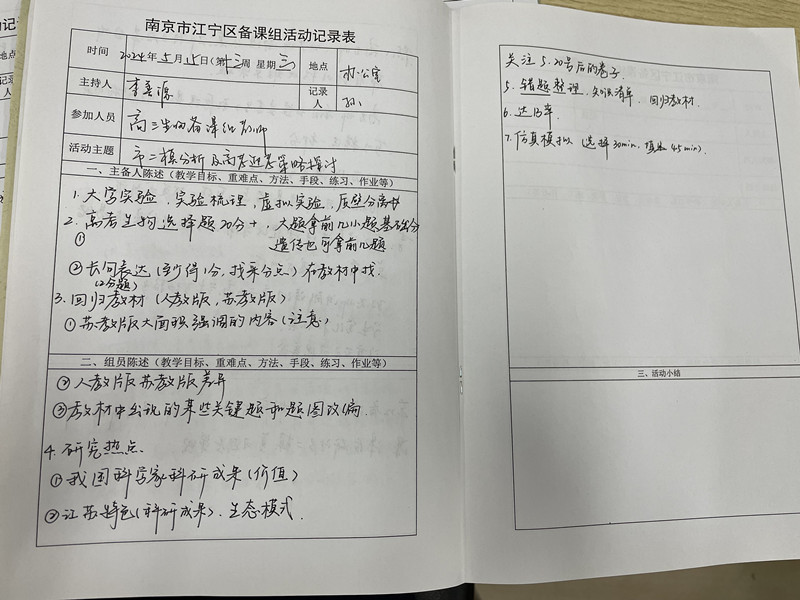 南京市江宁区备课组活动记录表
时间 2024年5月15日(第十三周 星期三) 地点 办公室
主持人 李善源 记录人 孙
参加人员 高三生物备课组老师
活动主题 市二模分析及高考迎考策略探讨
一、主备人陈述(教学目标、重难点、方法、手段、练习、作业等)
1. 大学实验, 实验梳理, 虚拟实验, 质壁分离
2. 高考生物选择题20分+, 大题拿前几小题基础分
① 遗传也可拿前几题
②长句表达(至少得1分, 找采分点)在教材中找.
(2分题)
3. 回归教材(人教版, 苏教版)
①苏教版大面积强调的内容(注意)
二、组员陈述(教学目标、重难点、方法、手段、练习、作业等)
②人教版苏教版差异
③教材中出现的某些关键题和题图改编.
4. 研究热点.
①我国科学家科研成果(价值)
②江苏特色(科研成果). 生态模式.
关注5.20号后的卷子.
5. 错题整理, 知识清单, 回归教材.
6. 达B率.
7. 仿真模拟 选择30min, 填空45min).
三、活动小结